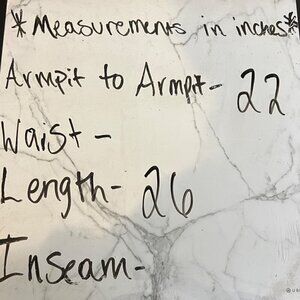 *Measurements in inches*
Armpit to Armpit- 22
Waist -
Length- 26
Inseam-